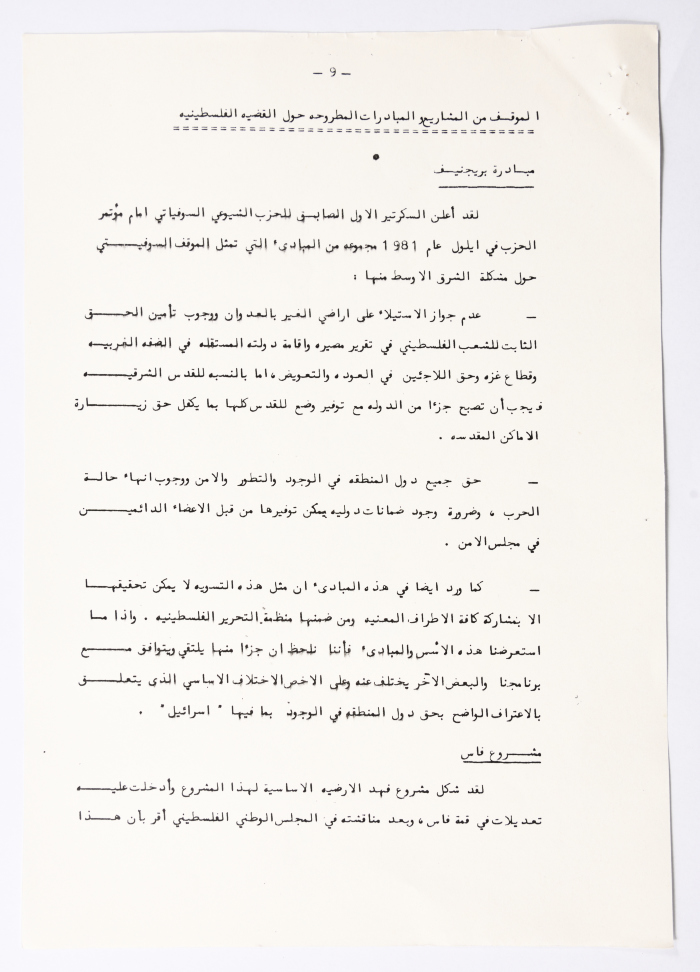 - 9 -
الموقف من المشاريع والمبادرات المطروحه حول القضيه الفلسطينيه
مبادرة بريجنيف
لقد أعلن السكرتير الاول السابق للحزب الشيوعي السوفياتي امام مؤتمر
الحزب في ايلول عام 1981 مجموعه من المبادىء التي تمثل الموقف السوفيتي
حول مشكلة الشرق الاوسط منها :
- عدم جواز الاستيلاء على اراضي الغير بالعدوان ووجوب تأمين الحق
الثابت للشعب الفلسطيني في تقرير مصيره واقامة دولته المستقله في الضفه الغربيه
وقطاع غزه وحق اللاجئين في العوده والتعويض، اما بالنسبه للقدس الشرقيه
فيجب أن تصبح جزءا من الدوله مع توفير وضع للقدس كلها بما يكفل حق زيارة
الاماكن المقدسه .
- حق جميع دول المنطقه في الوجود والتطور والامن ووجوب انهاء حالة
الحرب ، وضرورة وجود ضمانات دوليه يمكن توفيرها من قبل الاعضاء الدائمين
في مجلس الامن .
- كما ورد ايضا في هذه المبادىء ان مثل هذه التسويه لا يمكن تحقيقها
الا بمشاركة كافة الاطراف المعنيه ومن ضمنها منظمة التحرير الفلسطينيه . واذا ما
استعرضنا هذه الأسس والمبادىء فأننا نلحظ ان جزءا منها يلتقي ويتوافق مع
برنامجنا والبعض الآخر يختلف عنه وعلى الاخص الاختلاف الاساسي الذي يتعلق
بالاعتراف الواضح بحق دول المنطقه في الوجود بما فيها " اسرائيل " .
مشروع فاس
لقد شكل مشروع فهد الارضيه الاساسية لهذا المشروع وأدخلت عليه
تعديلات في قمة فاس ، وبعد مناقشته في المجلس الوطني الفلسطيني أقر بأن هذا